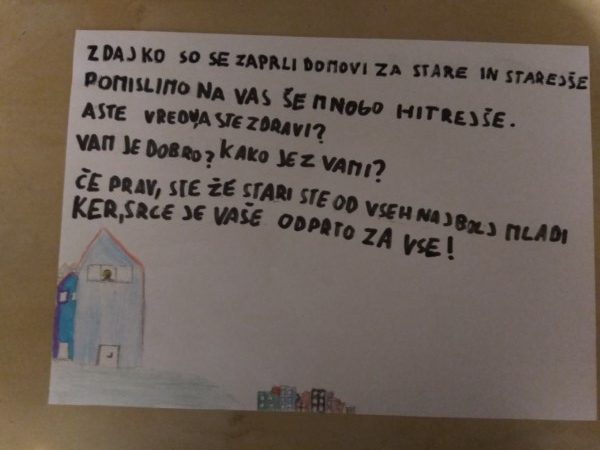 ZDAJ KO SO SE ZAPRLI DOMOVI ZA STARE IN STAREJŠE
POMISLIMO NA VAS ŠE MNOGO HITREJŠE.
ASTE VREDU,ASTE ZDRAVI?
VAM JE DOBRO? KAKO JE Z VAMI?
ČE PRAV, STE ŽE STARI STE OD VSEH NAJBOLJ MLADI
KER,SRCE JE VAŠE ODPRTO ZA VSE!